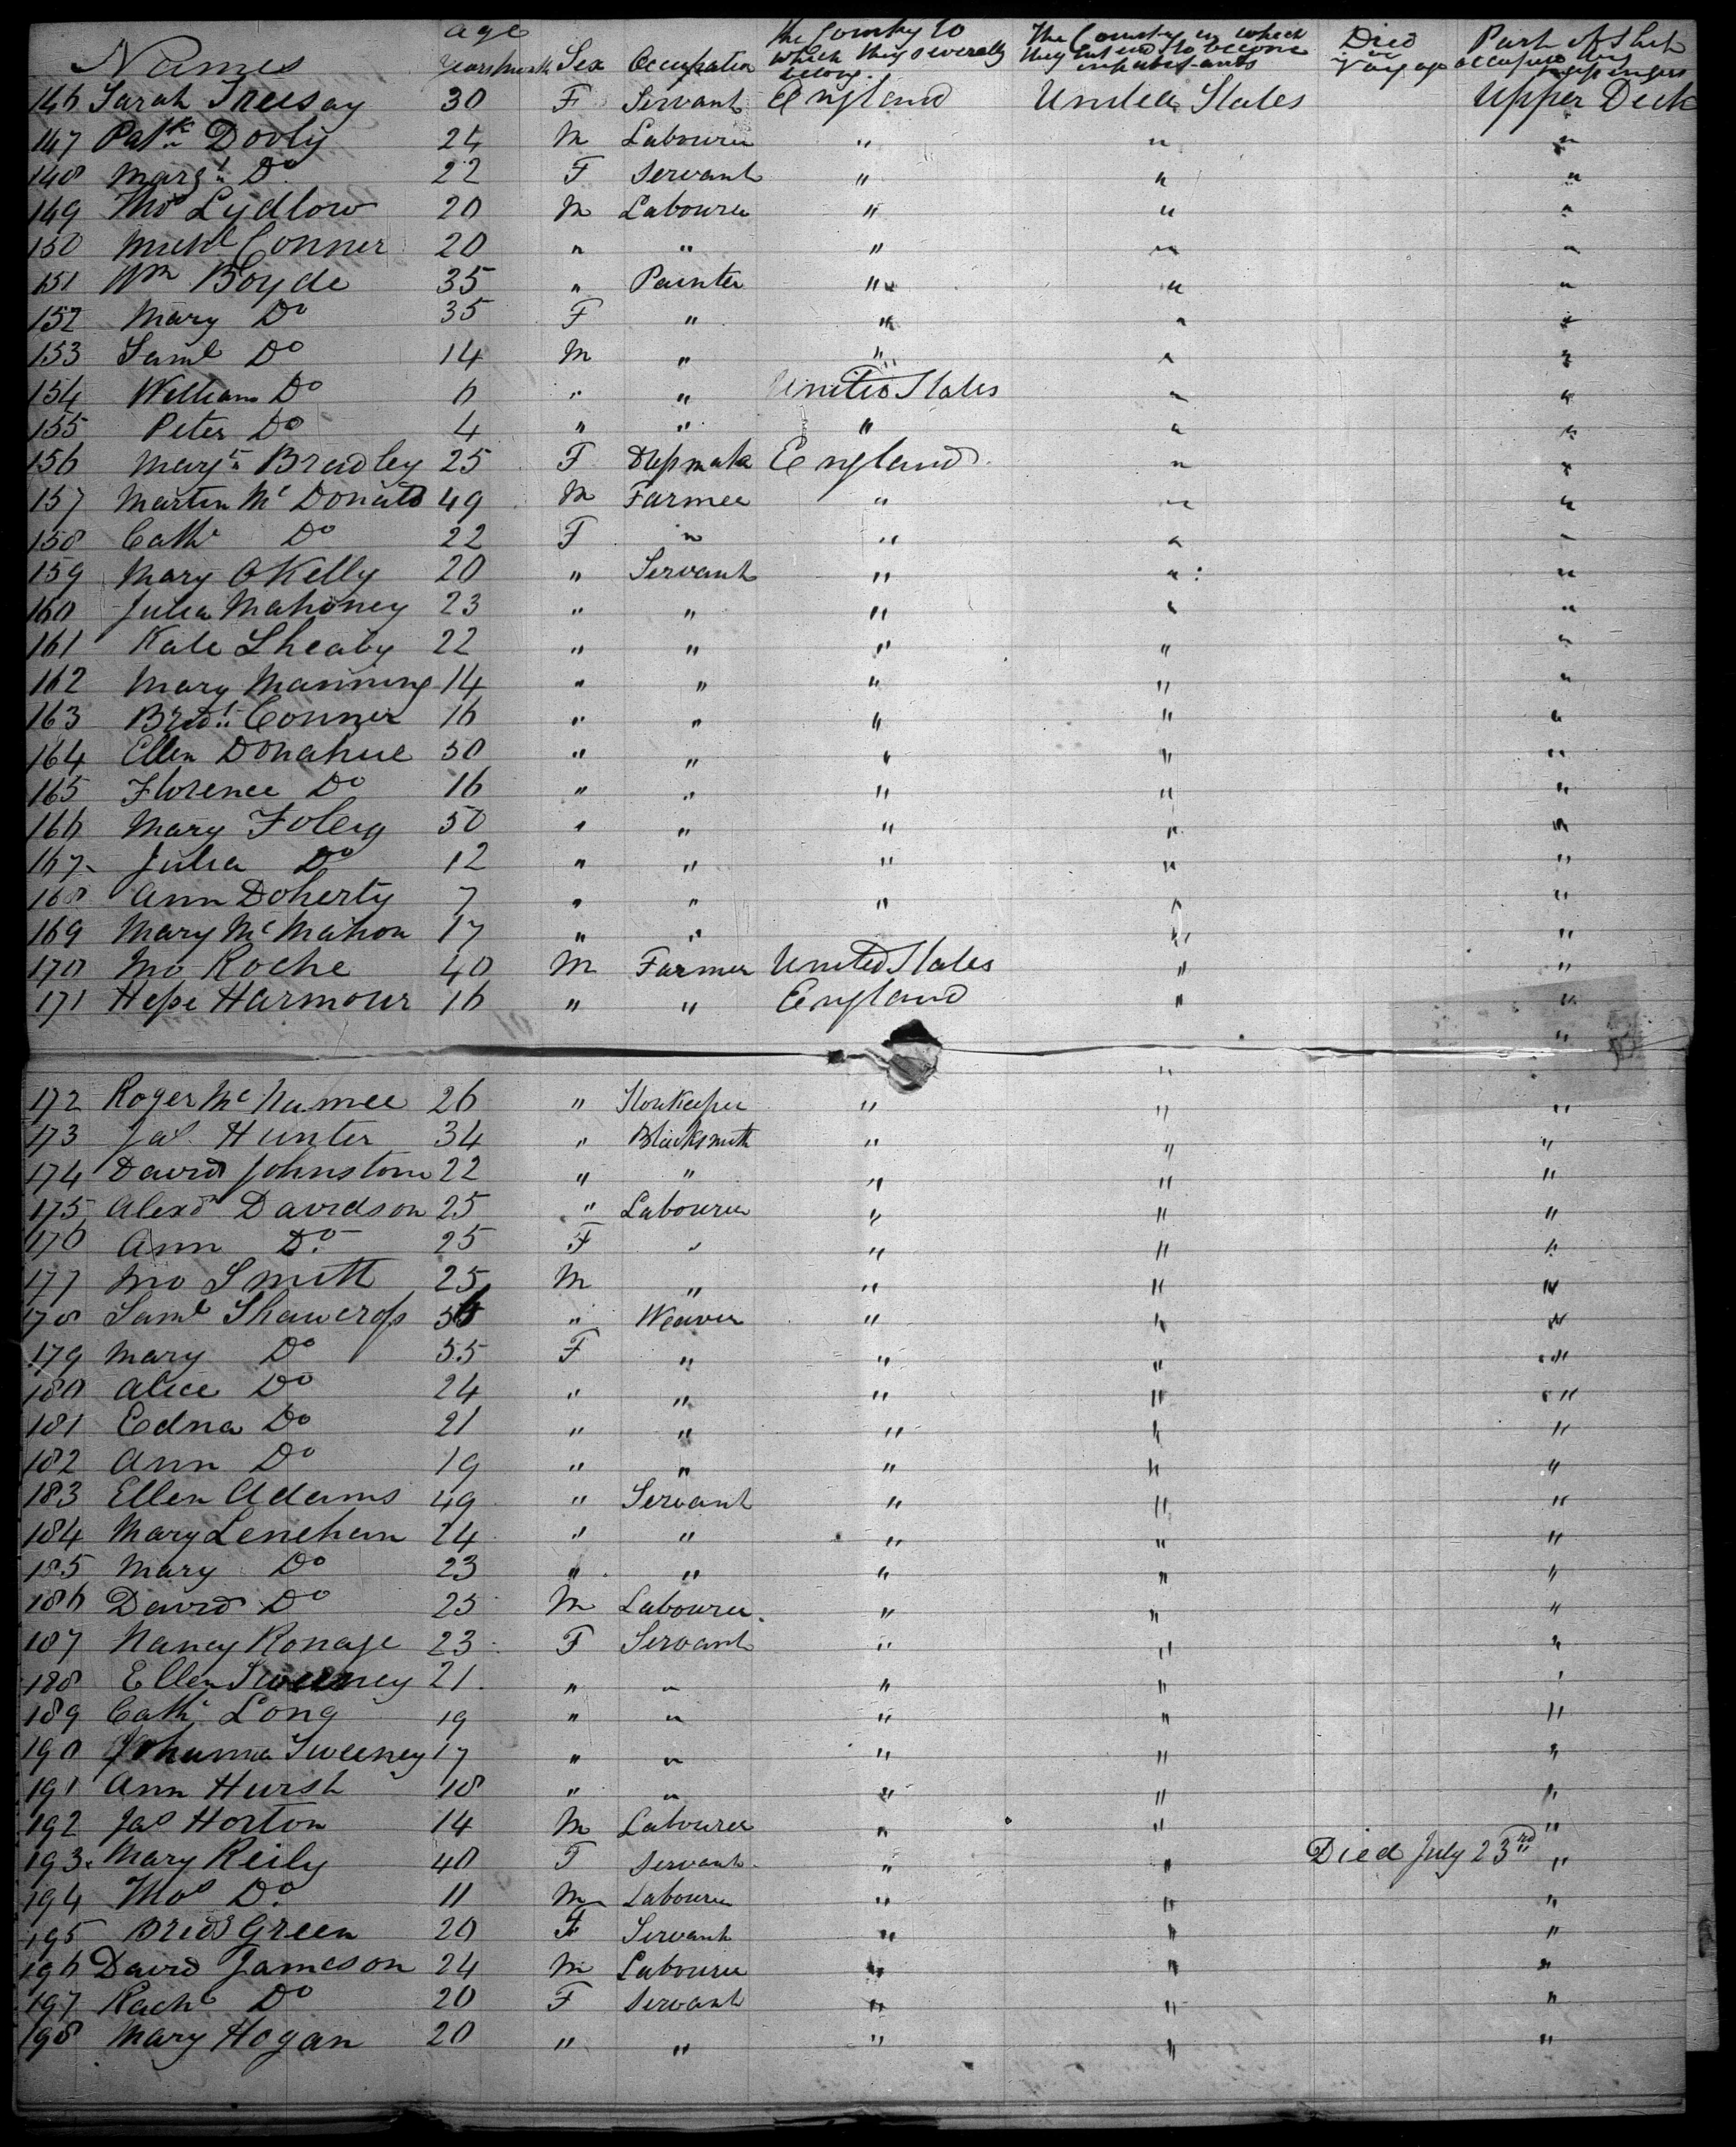 Names age Years Month Sex Occupation The Country to which they severally belong. The Country in which they intend to become inhabitants Died on Voyage Part of Ship occupied by passengers
146 Sarah Treesay 30 F Servant England United States Upper Deck
147 Patk Dooly 24 M Labourer " " "
148 Margt Do 22 F Servant " " "
149 Thos Lydlow 20 M Labourer " " "
150 Michl Conner 20 " " " " "
151 Wm Boyde 35 " Painter " " "
152 Mary Do 35 F " " " "
153 Saml Do 14 M " " " "
154 William Do 6 " " United States " "
155 Peter Do 4 " " " " "
156 Margt Bradley 25 F England " "
157 Martin Mc Donald 49 M Farmer " " "
158 Cathe Do 22 F " " " "
159 Mary OKelly 20 " Servant " " "
160 Julia Mahoney 23 " " " " "
161 Kate Sheahy 22 " " " " "
162 Mary Manning 14 " " " " "
163 Bridt Conner 16 " " " " "
164 Ellen Donahue 50 " " " " "
165 Florence Do 16 " " " " "
166 Mary Foley 50 " " " " "
167 Julia Do 12 " " " " "
168 Ann Doherty 7 " " " " "
169 Mary Mc Mahon 17 " " " " "
170 Jno Roche 40 M Farmer United States " "
171 Harmour 16 " " England " "
"
"
172 Roger Mc Namee 26 " Storekeeper " " "
173 Jas. Hunter 34 " Blacksmith " " "
174 David Johnstone 22 " " " " "
175 Alexdr Davidson 25 " Labourer " " "
176 Ann Do 25 F " " " "
177 Jno Smith 25 M " " " "
178 Saml Shawcross 56 " Weaver " " "
179 Mary Do 55 F " " " "
180 Alice Do 24 " " " " "
181 Edna Do 21 " " " " "
182 Ann Do 19 " " " " "
183 Ellen Adams 49 " Servant " " "
184 Mary Lenehan 24 " " " " "
185 Mary Do 23 " " " " "
186 David Do 25 M Labourer " " "
187 Nancy Ronage 23 F Servant " " "
188 Ellen Sweeney 21 " " " " "
189 Cathe Long 19 " " " " "
190 Johanna Sweeney 17 " " " " "
191 Ann Hursh 18 " " " " "
192 Jas Horton 14 M Labourer " " "
193 Mary Reily 40 F Servant " " Died July 23rd "
194 Thos Do 11 M Labourer " " "
195 Bridt Green 20 F Servant " " "
196 David Jameson 24 M Labourer " " "
197 Rachl Do 20 F Servant " " "
198 Mary Hogan 20 " " " " "